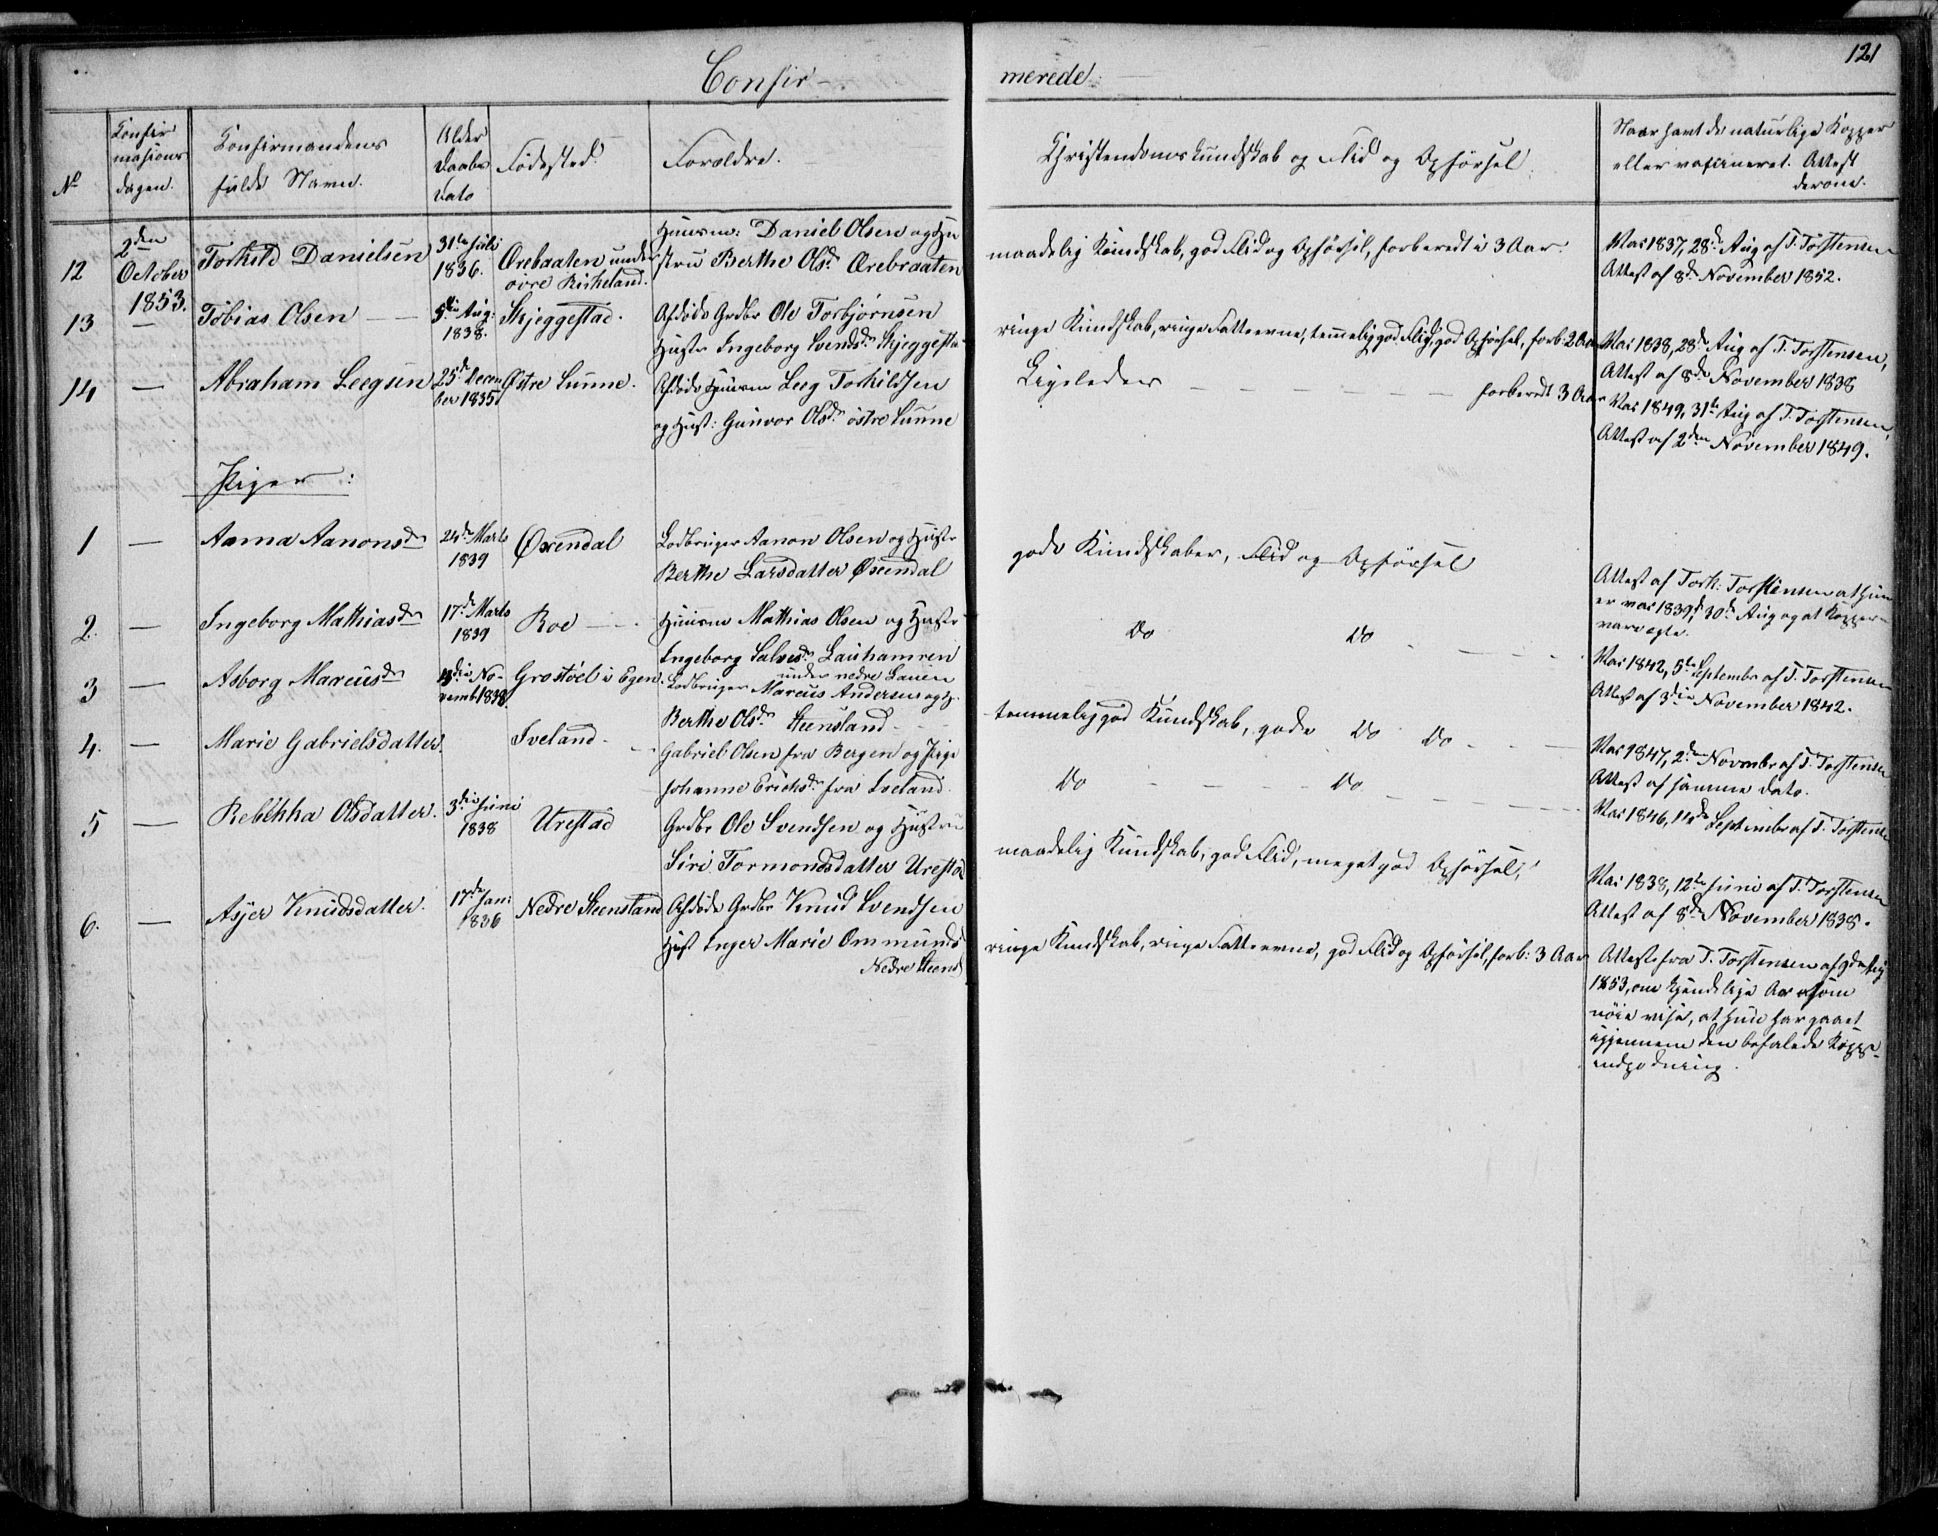 121
Confir-
merede.
No
Confir
mations
dagen.
Confirmandens
fulde Navn.
Alder
Daabs
Dato
Fødested.
Forældre.
Christendomskundskab og Flid og Opførsel.
Naar havt de naturlige Kopper
eller vaccineret. Attest
derom.
12
2den
October
1853.
Torkild Danielsen
31te Juli
1836.
Ørebaaten under
øvre Birkeland.
Huusm: Daniel Olsen og Hu
stru Berthe Olsdr Ørebraaten
maadelig Kundskab, god Flid og Opførsel, forberedt i 3 Aar.
Vac 1837, 28de Aug af T. Torstensen
Attest af 8de November 1852.
13
—
Tobias Olsen
5te Aug:
1838.
Skjeggestad.
Afdøde Grdbr Ole Torbjørnsen
Hustr Ingeborg Svendsdr Skjeggesta
ringe Kundskab, ringe Fatteevne, temmelig god Flid, god Opførsel, forb: 2 Aar
Vac 1838, 28de Aug af T. Torstensen,
Attest af 8de November 1838
14
—
Abraham Leegsen
25de Decem
ber 1835
Østre Lunne.
Afdøde Huusm Leeg Torkildsen
og Hust: Gunvor Olsdr østre Lunne
Ligeledes — — — — — forberedt 3 Aar
Vac 1849, 31te Aug af T. Torstensen,
Attest af 2den November 1849.
Piger:
1
—
Aanna Aanonsdr
24de Marts
1839
Øxendal
Lodbruger Aanon Olsen og Hustr
Berthe Larsdatter Øxendal
gode Kundskaber, Flid og Opførsel
Attest af Tork: Torstensen at hun
er vac 1839, 30de Aug og at Kopperne
vare ægte.
2.
—
Ingeborg Mathiasdr
17de Marts
1839
Roe
Huusm Mathias Olsen og Hustr
Ingeborg Salvesdr Lauhamren
under nedre Lauen
Do Do
Vac 1842, 5te Septembr af T. Torstensen
Attest af 3die November 1842.
3
—
Asborg Marcusdr
13die No-
vemb 1838.
Grostøel i Egen.
Lodbruger Marcus Andersen og H.
Berthe Olsdr Steensland
temmelig god Kundskab, gode Do Do
Vac 1847, 2den Novembr af T. Torstensen
Attest af samme Dato.
4.
—
Marie Gabrielsdatter.
Iveland
Gabriel Olsen fra Bergen og Pige
Johanne Erichsdr fra Iveland.
Do Do
Vac 1846, 14de Septembr af T. Torstensen
5
—
Rebekka Olsdatter.
3die Juni
1838
Urestad
Grdbr Ole Svendsen og Hustru
Siri Tormondsdatter Urestad
maadelig Kundskab, god Flid, meget god Opførsel,
Vac 1838, 12te Juni af T. Torstensen
Attest af 8de November 1838.
6.
—
Asjer Knudsdatter.
17de Jan:
1836
Nedre Steensland
Afdøde Grdbr Knud Svendsen
Hust Inger Marie Ommunds
Nedre Steensl
ringe Kundskab, ringe Fatteevne, god Flid og Opførsel, forb: 3 Aar
Attest fra T. Torstensen af 9de Aug
1853, om kjendelige Ar som
nøie vise, at hun har gaaet
igjennem den befalede Koppe-
indpodning.